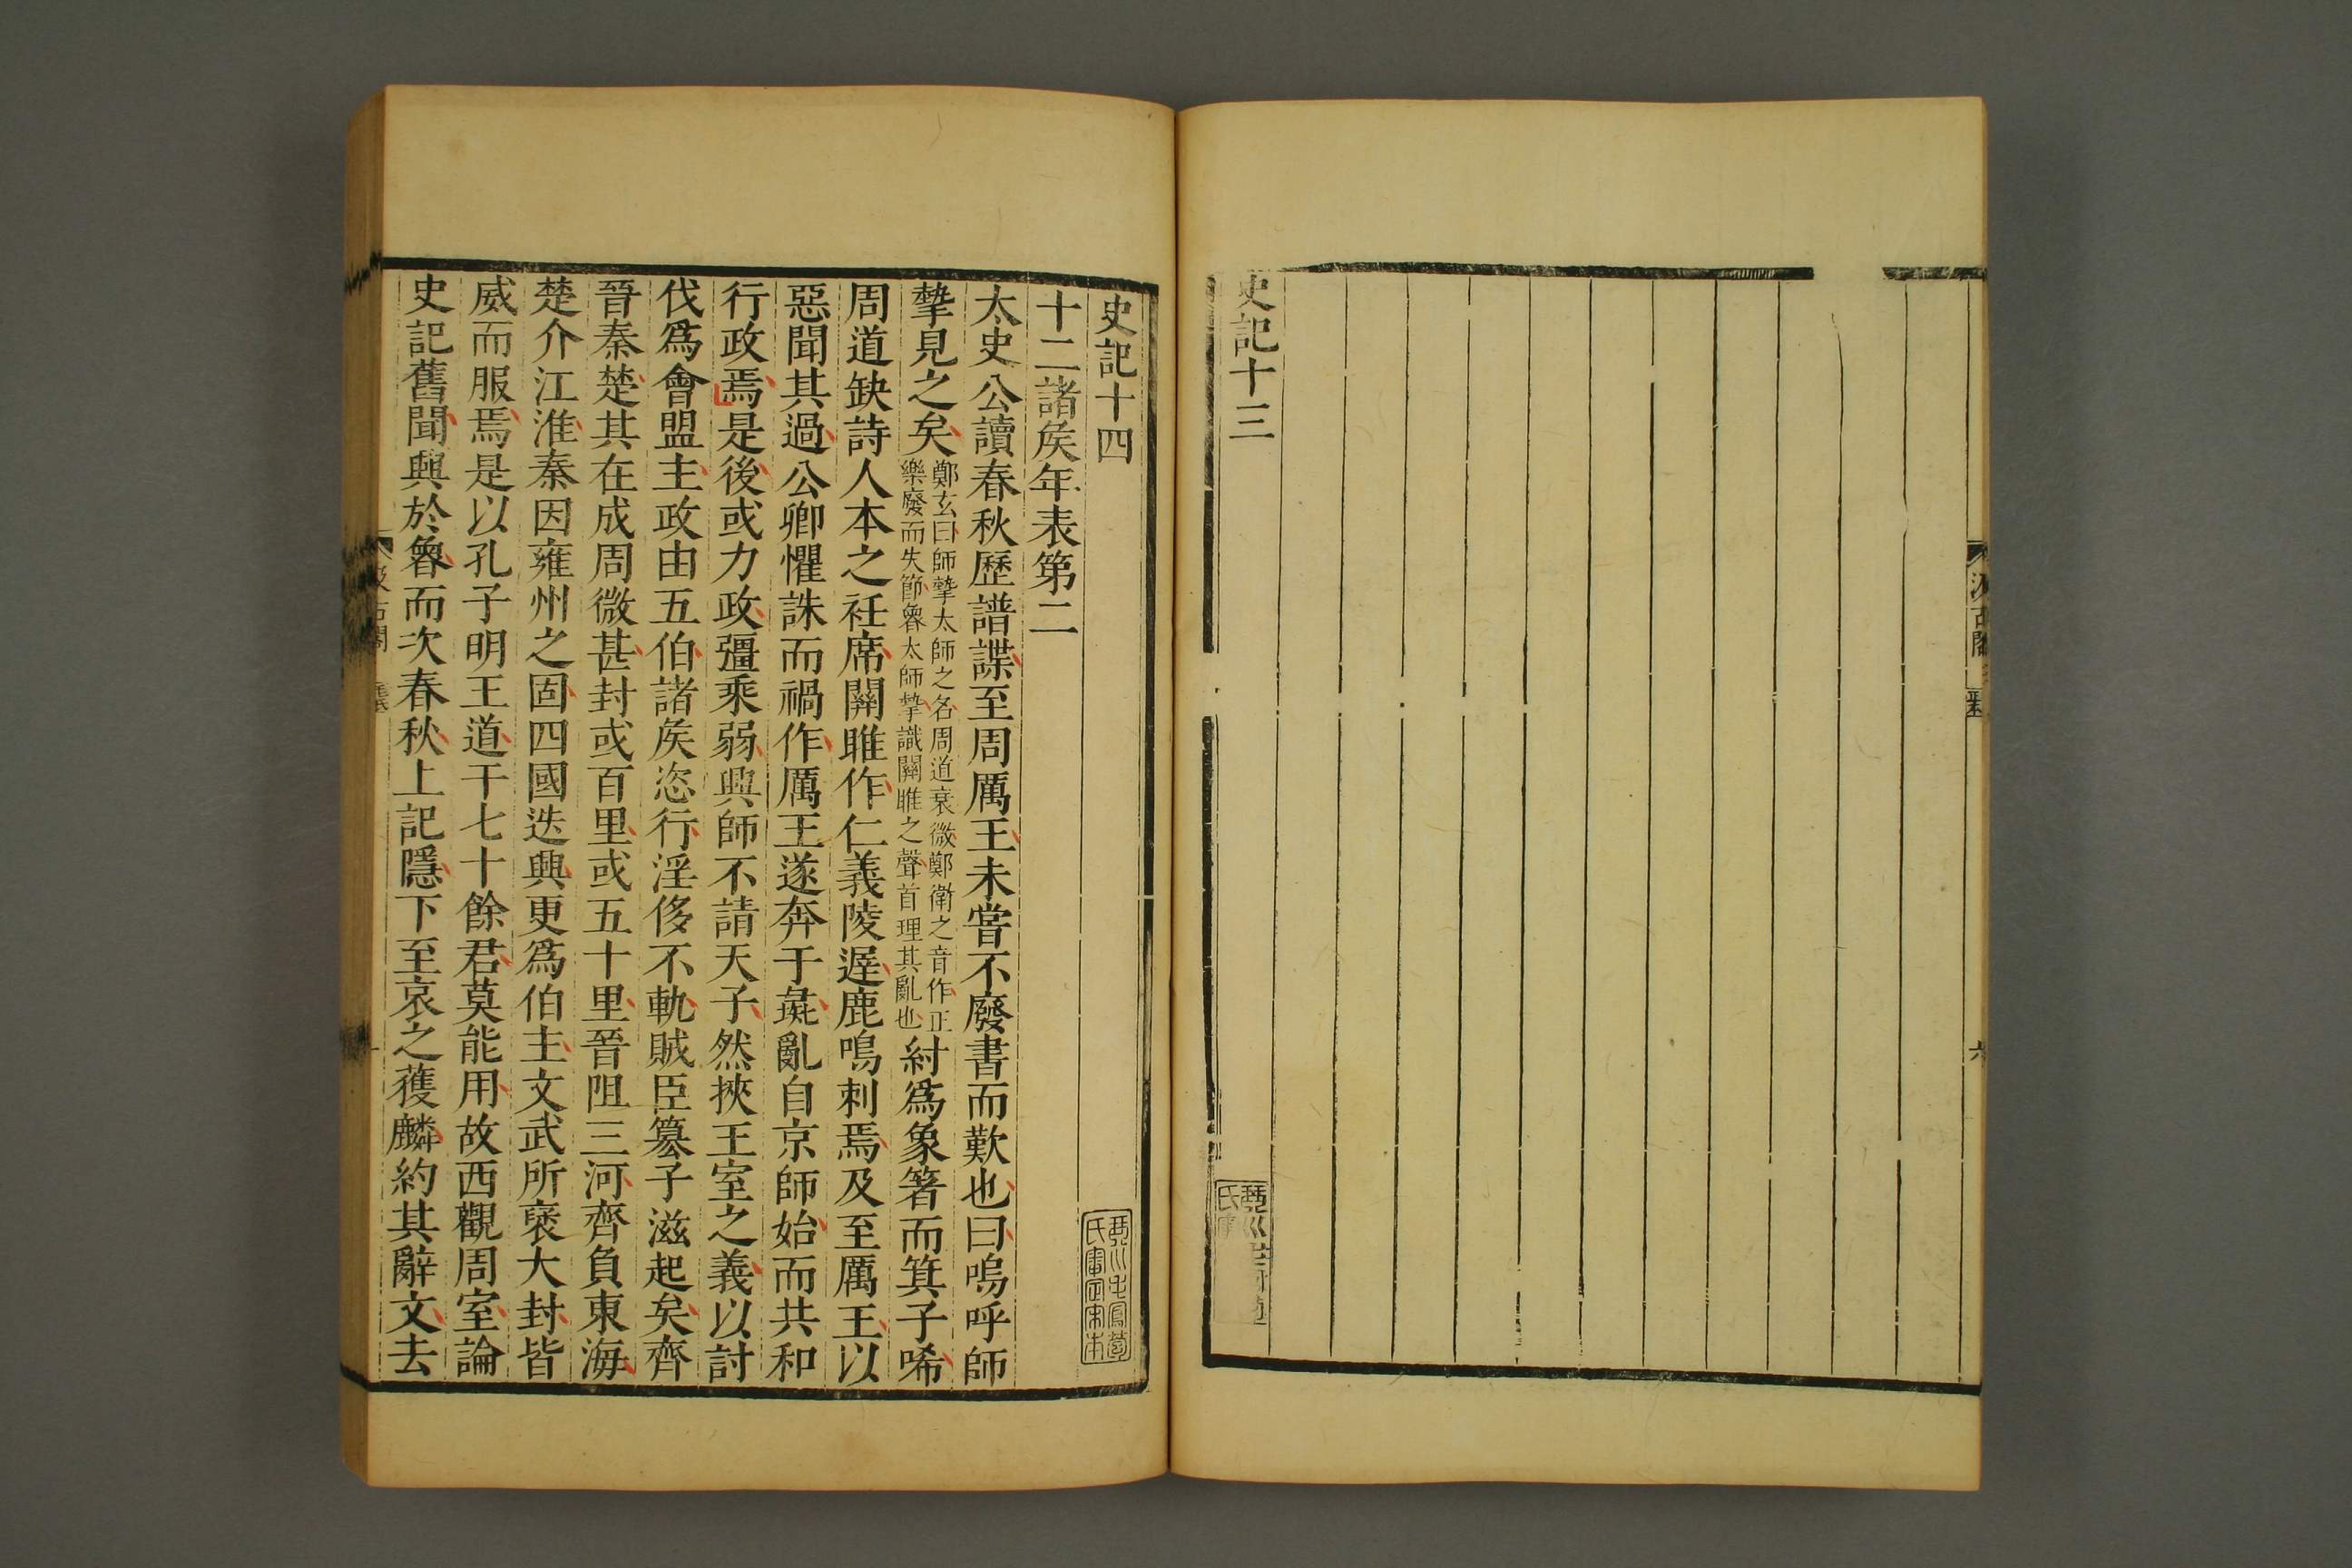 史記十三
史記十四
十二諸矦年表第二
太史公讀春秋歷譜諜至周厲王未嘗不廢書而歎也曰嗚呼師
摯見之矣
鄭玄曰師摯太師之名周道衰微鄭衛之音作正
樂廢而失節魯太師摯識關雎之聲首理其亂也
紂爲象箸而箕子唏
周道缺詩人本之衽席關雎作仁義陵遲鹿鳴刺焉及至厲王以
惡聞其過公卿懼誅而禍作厲王遂奔于彘亂自京師始而共和
行政焉是後或力政彊乘弱興師不請天子然挾王室之義以討
伐爲會盟主政由五伯諸矦恣行淫侈不軌賊臣篡子滋起矣齊
晉秦楚其在成周微甚封或百里或五十里晉阻三河齊負東海
楚介江淮秦因雍州之固四國迭興更爲伯主文武所襃大封皆
威而服焉是以孔子明王道干七十餘君莫能用故西觀周室論
史記舊聞興於魯而次春秋上記隱下至哀之獲麟約其辭文去